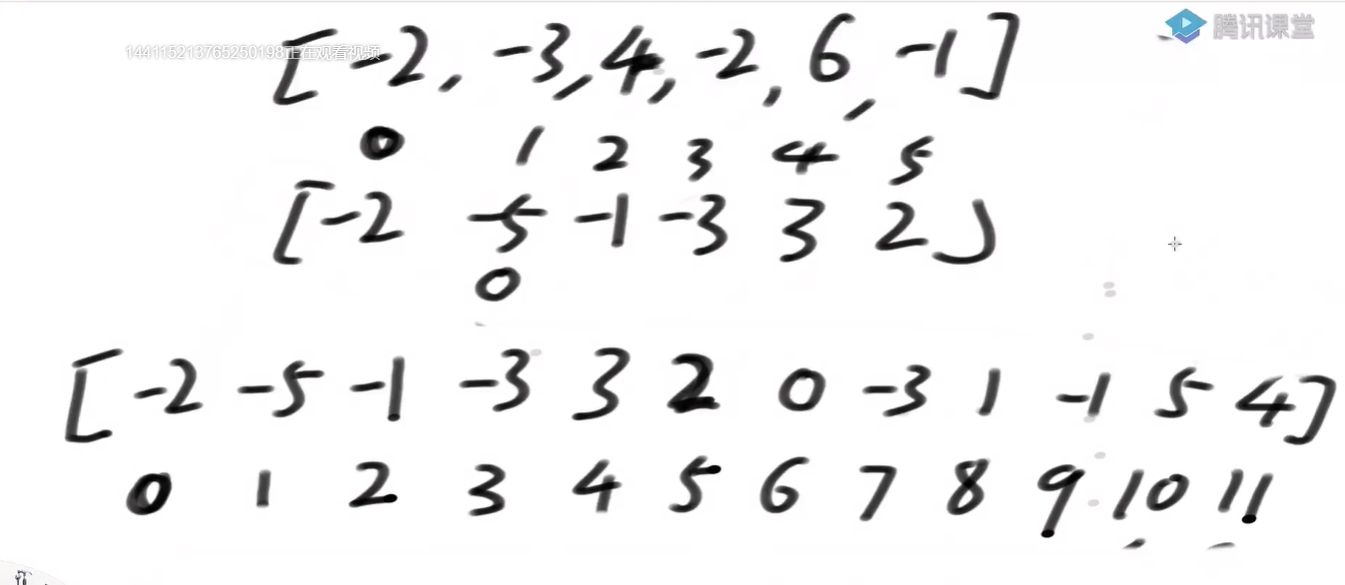 腾讯课堂
144115213765250198正在观看视频
[-2, -3, 4, -2, 6, -1]
0 1 2 3 4 5
[-2 -5 -1 -3 3 2]
0
[-2 -5 -1 -3 3 2 0 -3 1 -1 5 4]
0 1 2 3 4 5 6 7 8 9 10 11